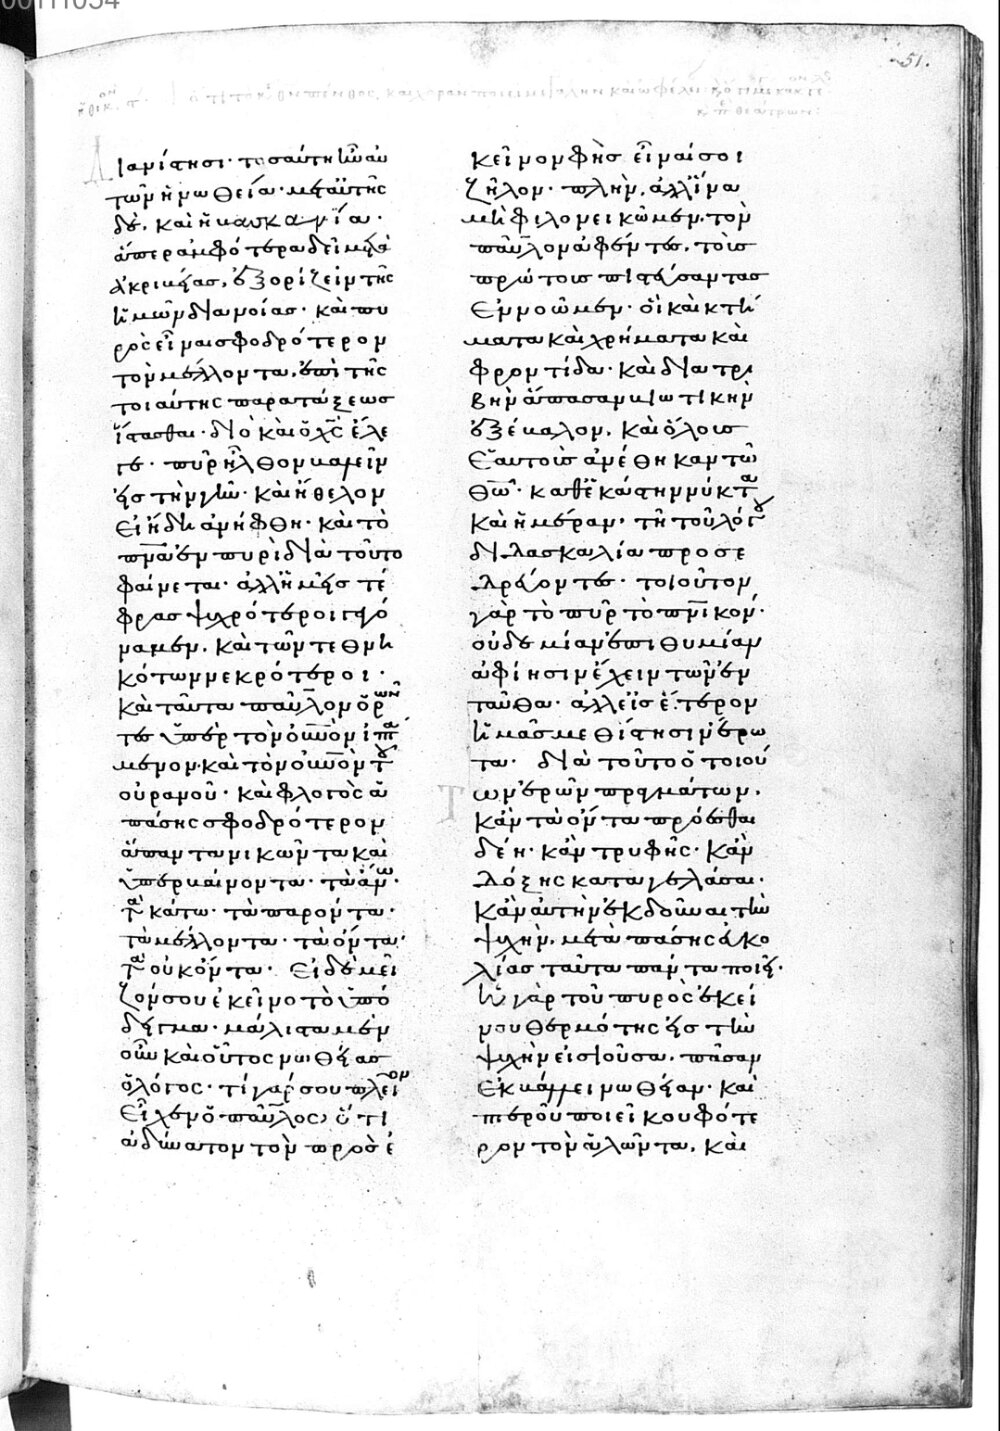 51.
Διανίστησι· τοσαύτη ἦν αὐ
τῶν ἡ νωθεία· μετ' αὐτῆς
δὲ, καὶ ἡ κακία·
ἅπερ ἀμφότερα δεῖ μετὰ
ἀκριβείας, ἐξορίζειν τῆς
ἡμῶν διανοίας· καὶ πυ
ρὸς εἶναι σφοδρότερον
τὸν μέλλοντα, ἐπὶ τῆς
τοιαύτης παρατάξεως
ἵστασθαι· διὸ καὶ ὁ χς ἔλε
γε· πῦρ ἦλθον βαλεῖν
εἰς τὴν γῆν· καὶ ἤθελον
εἰ ἤδη ἀνήφθη· καὶ τὸ
πνα ἐν πυρὶ διὰ τοῦτο
φαίνεται· ἀλλ' ἡμεῖς τέ
φρας ψυχρότεροι γεγό
ναμεν, καὶ τῶν τεθνη
κότων νεκρότεροι·
καὶ ταῦτα παῦλον ὁρῶν
τες ὑπὲρ τὸν οὐνον ἱπτά
μενον· καὶ τὸν οὐνον τοῦ
οὐρανοῦ· καὶ φλογὸς ἁ
πάσης σφοδρότερον
ἅπαντα νικῶντα καὶ
ὑπερβαίνοντα· τὰ ἄνω·
τὰ κάτω· τὰ παρόντα·
τὰ μέλλοντα· τὰ ὄντα·
τὰ οὐκ ὄντα· Εἰ δὲ μεῖ
ζόν σου ἐκεῖνο τὸ ὑπό
δειγμα· μάλιστα μὲν
οὖν καὶ οὗτος νωθείας
ὁ λόγος· τί γάρ σου πλεῖον
εἶχεν ὁ παῦλος, ὅτι
ἀδύνατον τὸν πρὸς ἐ
κεῖνον φῂς εἶναί σοι
ζῆλον· πλὴν, ἀλλ' ἵνα
μὴ φιλονεικῶμεν, τὸν
παῦλον ἀφέντες, τοὺς
πρώτους πιστεύσαντας
ἐννοῶμεν· οἳ καὶ κτή
ματα καὶ χρήματα καὶ
φροντίδα· καὶ δια τρι
βὴν ἅπασαν βιωτικὴν
ἐξέβαλον, καὶ ὅλους
ἑαυτοὺς ἀνέθηκαν τῷ
θῶ· καθ' ἑκάστην νύκτα
καὶ ἡμέραν· τῇ τοῦ λόγου
διδασκαλία προσε
δρεύοντες· τοιοῦτον
γὰρ τὸ πῦρ τὸ πνικόν·
οὐδεμίαν ἐπιθυμίαν
ἀφίησιν ἔχειν τῶν ἐν
ταῦθα· ἀλλ' εἰς ἕτερον
ἡμᾶς μεθίστησιν ἔρω
τα· διὰ τοῦτο ὁ τοιού
των ἐρῶν πραγμάτων,
κἂν τὰ ὄντα προέσθαι
δέη· κἂν τρυφῆς· κἂν
δόξης καταγελάσαι·
κἂν αὐτὴν ἐκδοῦναι τὴν
ψυχὴν, μετὰ πάσης εὐκο
λίας ταῦτα πάντα ποιεῖ·
ἡ γὰρ τοῦ πυρὸς ἐκεί
νου θερμότης εἰς τὴν
ψυχὴν εἰσιοῦσα, πᾶσαν
ἐκβάλλει νωθείαν· καὶ
πτεροῦ ποιεῖ κουφότε
ρον τὸν ἁλῶντα, καὶ